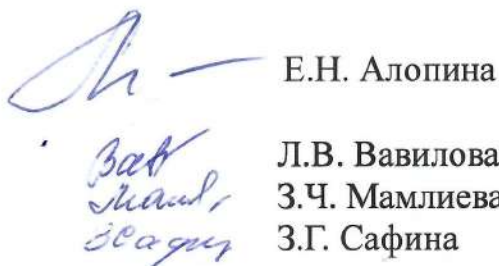 Е.Н. Алопина
Л.В. Вавилова
З.Ч. Мамлиева
З.Г. Сафина